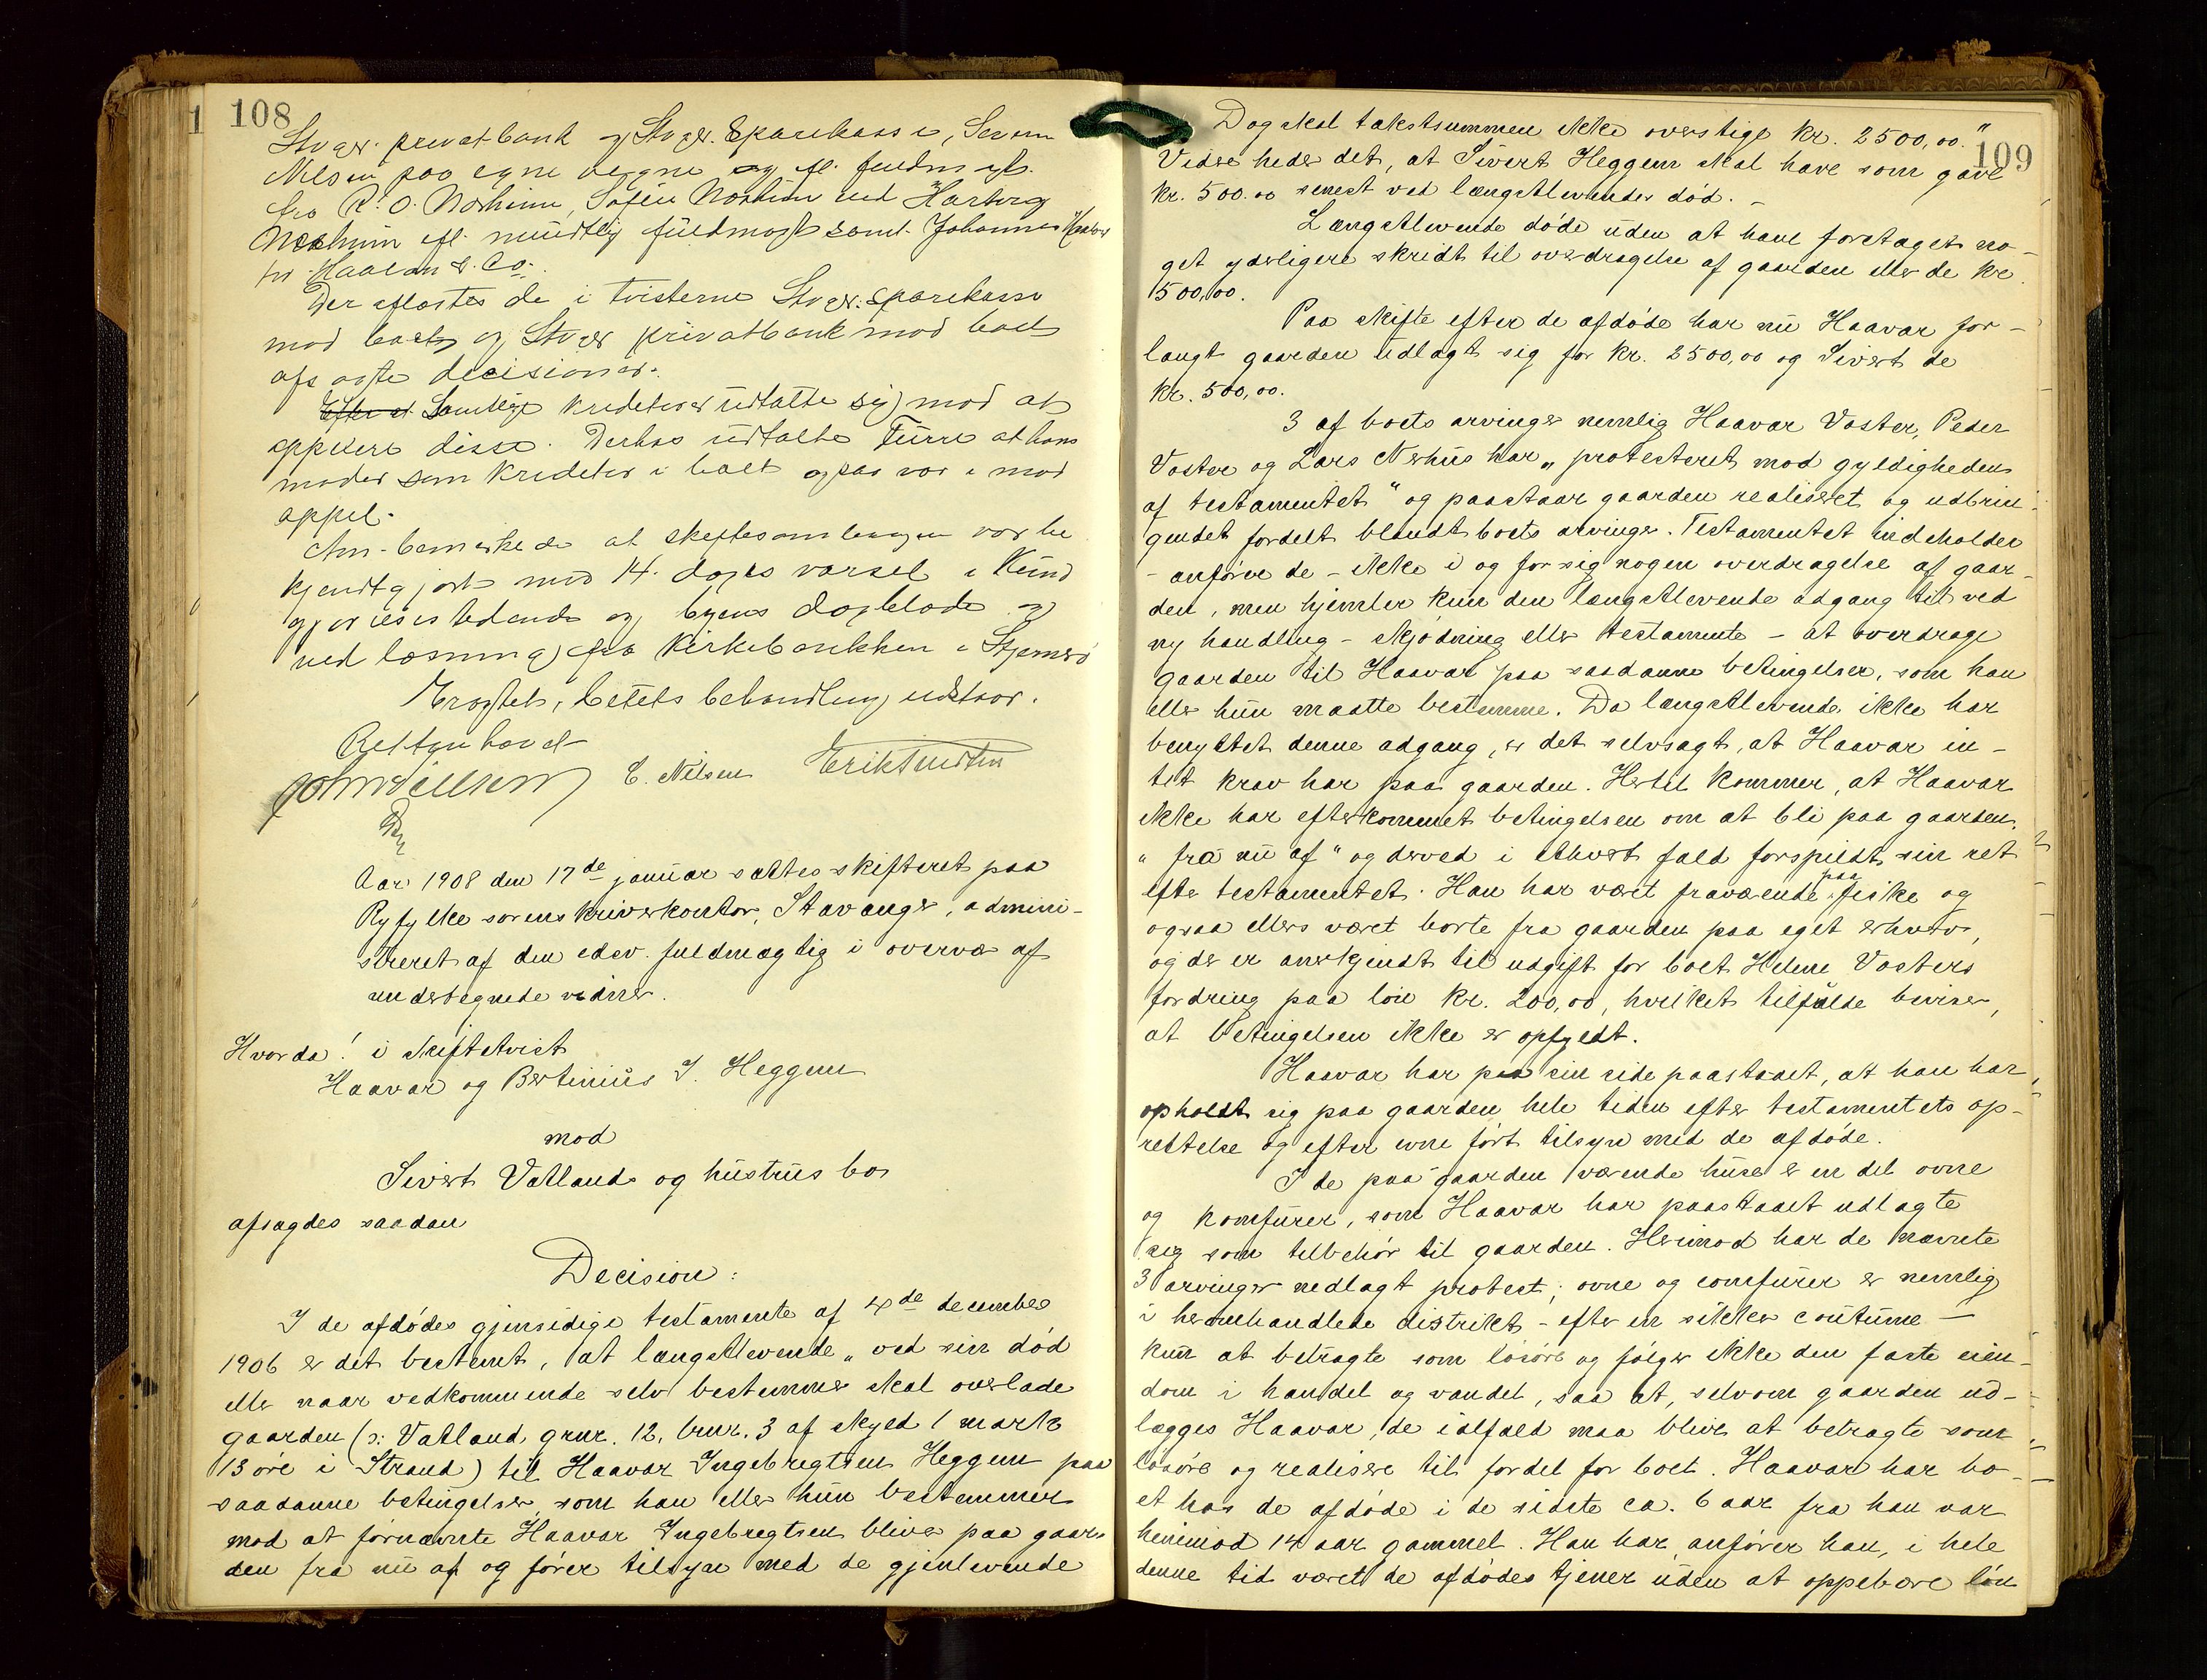 1 108
Stvgr. privatbank og Stvgr. Sparekasse,
Nilsen paa egne vegne og efl. fuldmagt
fra R. O. Norheim, Sofie Norheim ved Hartvig
Norheim efl. mundtlig fuldmagt samt Johannes
for Haaland & Co.
Der oplæstes de i tvisterne Stvgr. Sparekasse
mod boet og Stvgr privatbank mod boet
afsagte decisioner.
Efter at Samtlige kreditorer udtalte sig mod at
appellere disse. Derhos udtalte Furre at hans
moder som kreditor i boet ogsaa var imod
appel.
Anm. bemærkede at skiftesamlingen var be
kjendtgjort med 14. dages varsel i Kund
gjørelsestidende og byens dagblade og
ved læsning fra kirkebakken i Stjernerø
Fragaaet, boets behandling udstaar.
Retten hævet
E. Nilsen Erik Knudsen
Aar 1908 den 17de januar sattes skifteret paa
Ryfylke sorenskriverkontor, Stavanger, admini-
streret af den edsv. fuldmægtig i overvær af
undertegnede vidner.
Hvorda! i skiftetvist
Haavar og Bertinius I. Heggem
mod
Sivert Vatland og hustrus bo
afsagdes saadan
Decision:
I de afdødes gjensidige testamente af 4de december
1906 er det bestemt, at længstlevende „ved sin død
eller naar vedkommende selv bestemmer skal overlade
gaarden (s: Vatland, gnr. 12, bnr. 3 af skyld 1 mark
13 øre i Strand) til Haavar Ingebregtsen Heggem paa
saadanne betingelser, som han eller hun bestemmer
mod at førnævnte Haavar Ingebregtsen bliver paa gaar-
den fra nu af og fører tilsyn med de gjenlevende
109
Dog skal takstsummen ikke overstige kr. 2500,00."
Videre heder det, at Sivert Heggem skal have som gave
kr. 500.00 senest ved længstlevendes død. -
Længstlevende døde uden at have foretaget no-
get yderligere skridt til overdragelse af gaarden eller de kr.
500,00.
Paa skifte efter de afdøde har nu Haavar for-
langt gaarden udlagt sig for kr. 2500,00 og Sivert de
kr. 500,00.
3 af boets arvinger nemlig Haavar Voster, Peder
Voster og Lars Nerhus har „protesteret mod gyldigheden
af testamentet" og paastaar gaarden realiseret og udbrin-
gendet fordelt blandt boets arvinger. Testamentet indeholder
- anfører de - ikke i og for sig nogen overdragelse af gaar-
den, men hjemler kun den længstlevende adgang til ved
ny handling - skjødning eller testamente - at overdrage
gaarden til Haavar paa saadanne betingelser, som han
eller hun maatte bestemme. Da længstlevende ikke har
benyttet denne adgang, er det selvsagt, at Haavar in-
tet krav har paa gaarden. Hertil kommer, at Haavar
ikke har efterkommet betingelsen om at bli paa gaarden
„fra nu af" og derved i ethvert fald forspildt sin ret
efter testamentet. Han har været fraværende paa fiske og
ogsaa ellers været borte fra gaarden paa eget erhverv,
og der er anerkjendt til udgift for boet Helene Vosters
fordring paa løn kr. 200,00, hvilket tilfulde beviser,
at betingelsen ikke er opfyldt.
Haavar har paa sin side paastaaet, at han har
opholdt sig paa gaarden hele tiden efter testamentets op-
rettelse og efter evne ført tilsyn med de afdøde.
I de paa gaarden værende huse er en del ovne
og komfurer, som Haavar har paastaaet udlagte
sig som tilbehør til gaarden. Herimod har de nævnte
3 arvinger nedlagt protest; ovne og comfurer er nemlig
i heromhandlede distrikt - efter en sikker coutume -
kun at betragte som løsøre og følger ikke den faste eien-
dom i handel og vandel, saa at, selvom gaarden ud-
lægges Haavar, de ialfald maa blive at betragte som
løsøre og realisere til fordel for boet. Haavar har bo-
et hos de afdøde i de sidste ca. 6 aar fra han var
henimod 14 aar gammel. Han har, anfører han, i hele
denne tid været de afdødes tjener uden at oppebære løn